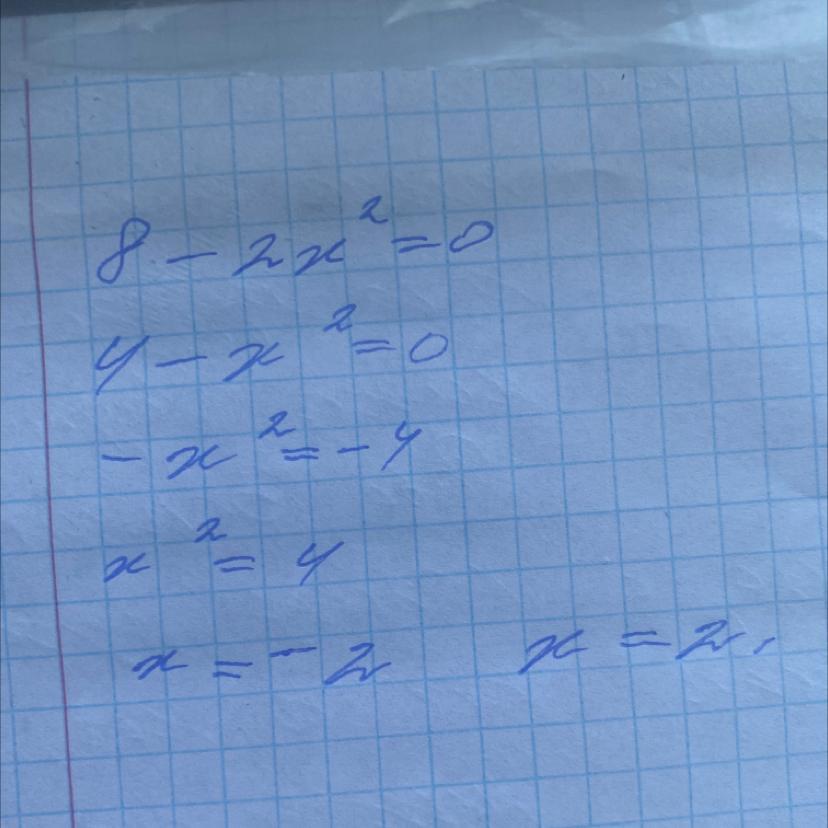 8 - 2x² = 0
4 - x² = 0
- x² = - 4
x² = 4
x = - 2 x = 2,